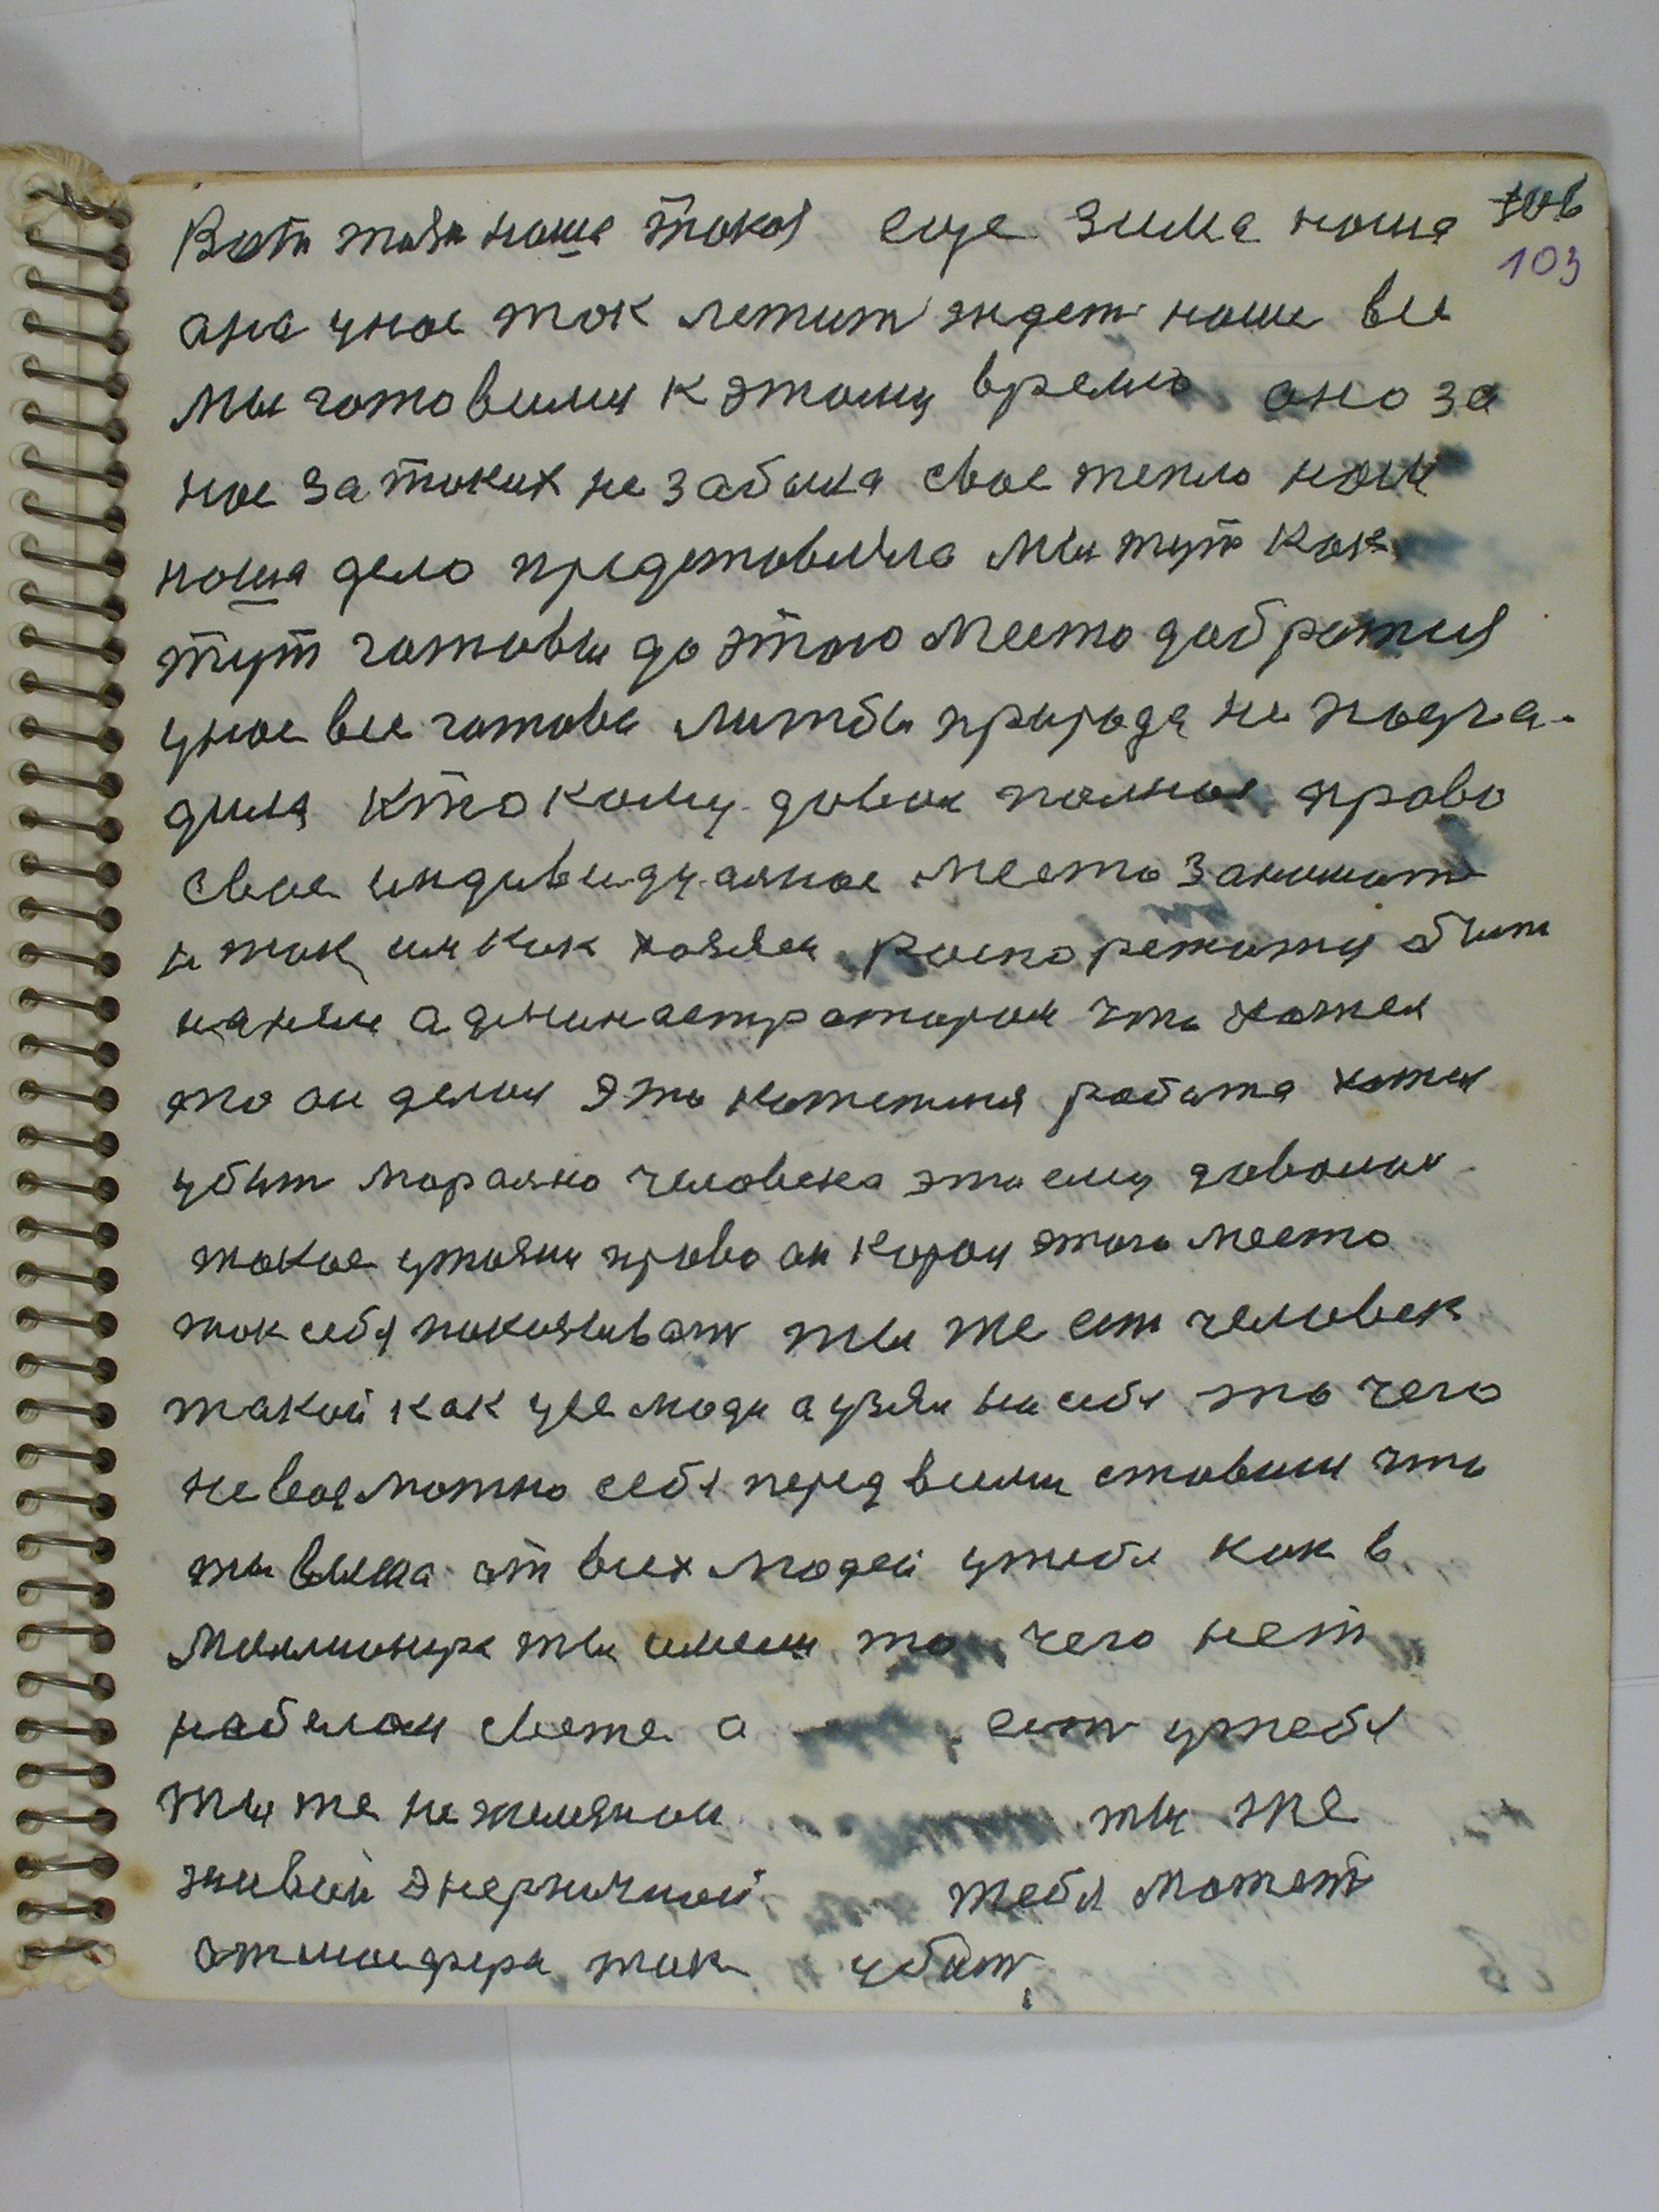 Вот жизн наша такая еще зима наша
103
ана унас так летит ждет наше все
мы готовимся к этому время оно за
нас за таких не забыла свае тепло нам
наша дело представила мы тут как
тут готовы до этого место добратися
унас все готова литбы природа не поуга-
дила ктокому давал полное право
свае индивидуалное место занимат
и так им как хозяен распорежатся быт
наним админастратором что хател
то он делал это натетиня работа хотел
убит морално человека это ему давалис
такое утояни право он корол этого место
так себя показиват ты же ест человек
такой как усе люди а узял на себя то чего
невозможно себя перед всеми ставиш что
ты выша от всех людей утебя как в
миллионера ты имееш то чего нет
набелом свете а ест утебя
ты же не желязной ты же
живой энергичной тебя может
атмосфера так убит